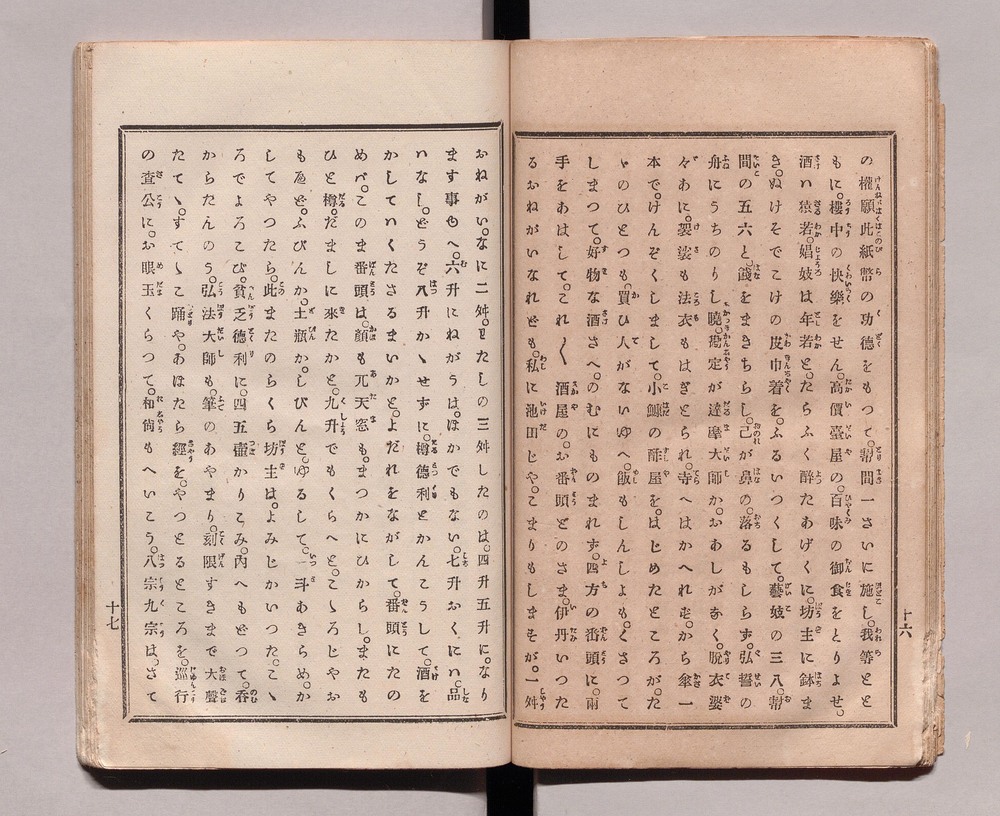 の權願此紙幣の功德をもつて。幇間一さいに施し。我等とと
もに。樓中の快樂をせん。高價臺屋の。百味の御食をとりよせ。
酒ハ猿若。娼妓は年若と。たらふく醉たあげくに。坊主に鉢ま
き。ぬけそでこけの皮巾着を。ふるいつくして。藝妓の三八。幇
間の五六と。錢をまきちらし。己が鼻の。落るもしらず。弘誓の
舟にうちのりし曉。勘定が達摩大師か。おあしがなく。脫衣婆
々あに。袈裟も法衣もはぎとられ。寺へはかへれず。から傘一
本で。けんぞくしまして。小鯛の酢屋を。はじめたところが。た
ゝのひとつも。買ひ人がないゆへ。飯もしんしよも。くさつて
しまつて。好物な酒さへ。のむにものまれず。四方の番頭に。兩
手をあはして。これ〳〵酒屋の。お番頭どのさま。伊丹いつた
るおねがいなれども。私に池田じや。こまりもしまそが。一舛
おねがい。なに二舛。ヱたしの三舛したのは。四升五升に。なり
ます事もへ。六升にねがうは。ほかでもない。七升おくにハ。品
いなし。どうぞ八升かゝせずに。樽德利とかんこうして。酒を
かしていくたさるまいかと。よだれをながして。番頭にたの
めバ。このま番頭は。顔も兀天窓も。まつかにひからし。またも
ひと樽。だましに來たかと。九升でもくらへと。こゝろじやお
も。ゑど。ふびんか。土瓶か。しびんと。ゆるして。一斗あきらめ。か
してやつたら。此またのらくら坊主は。よみじかいつた。こゝ
ろでよろこび。貧乏德利に。四五壷かりこみ。內へもどつて。呑
からたんのう。弘法大師も。筆のあやまり。刻限すきまで大聲
たてゝ。すてゝこ踊や。あほたら經を。やつとるところを。巡行
の査公に。お眼玉くらつて。和尙もへいこう。八宗九宗は。さて
十六
十七